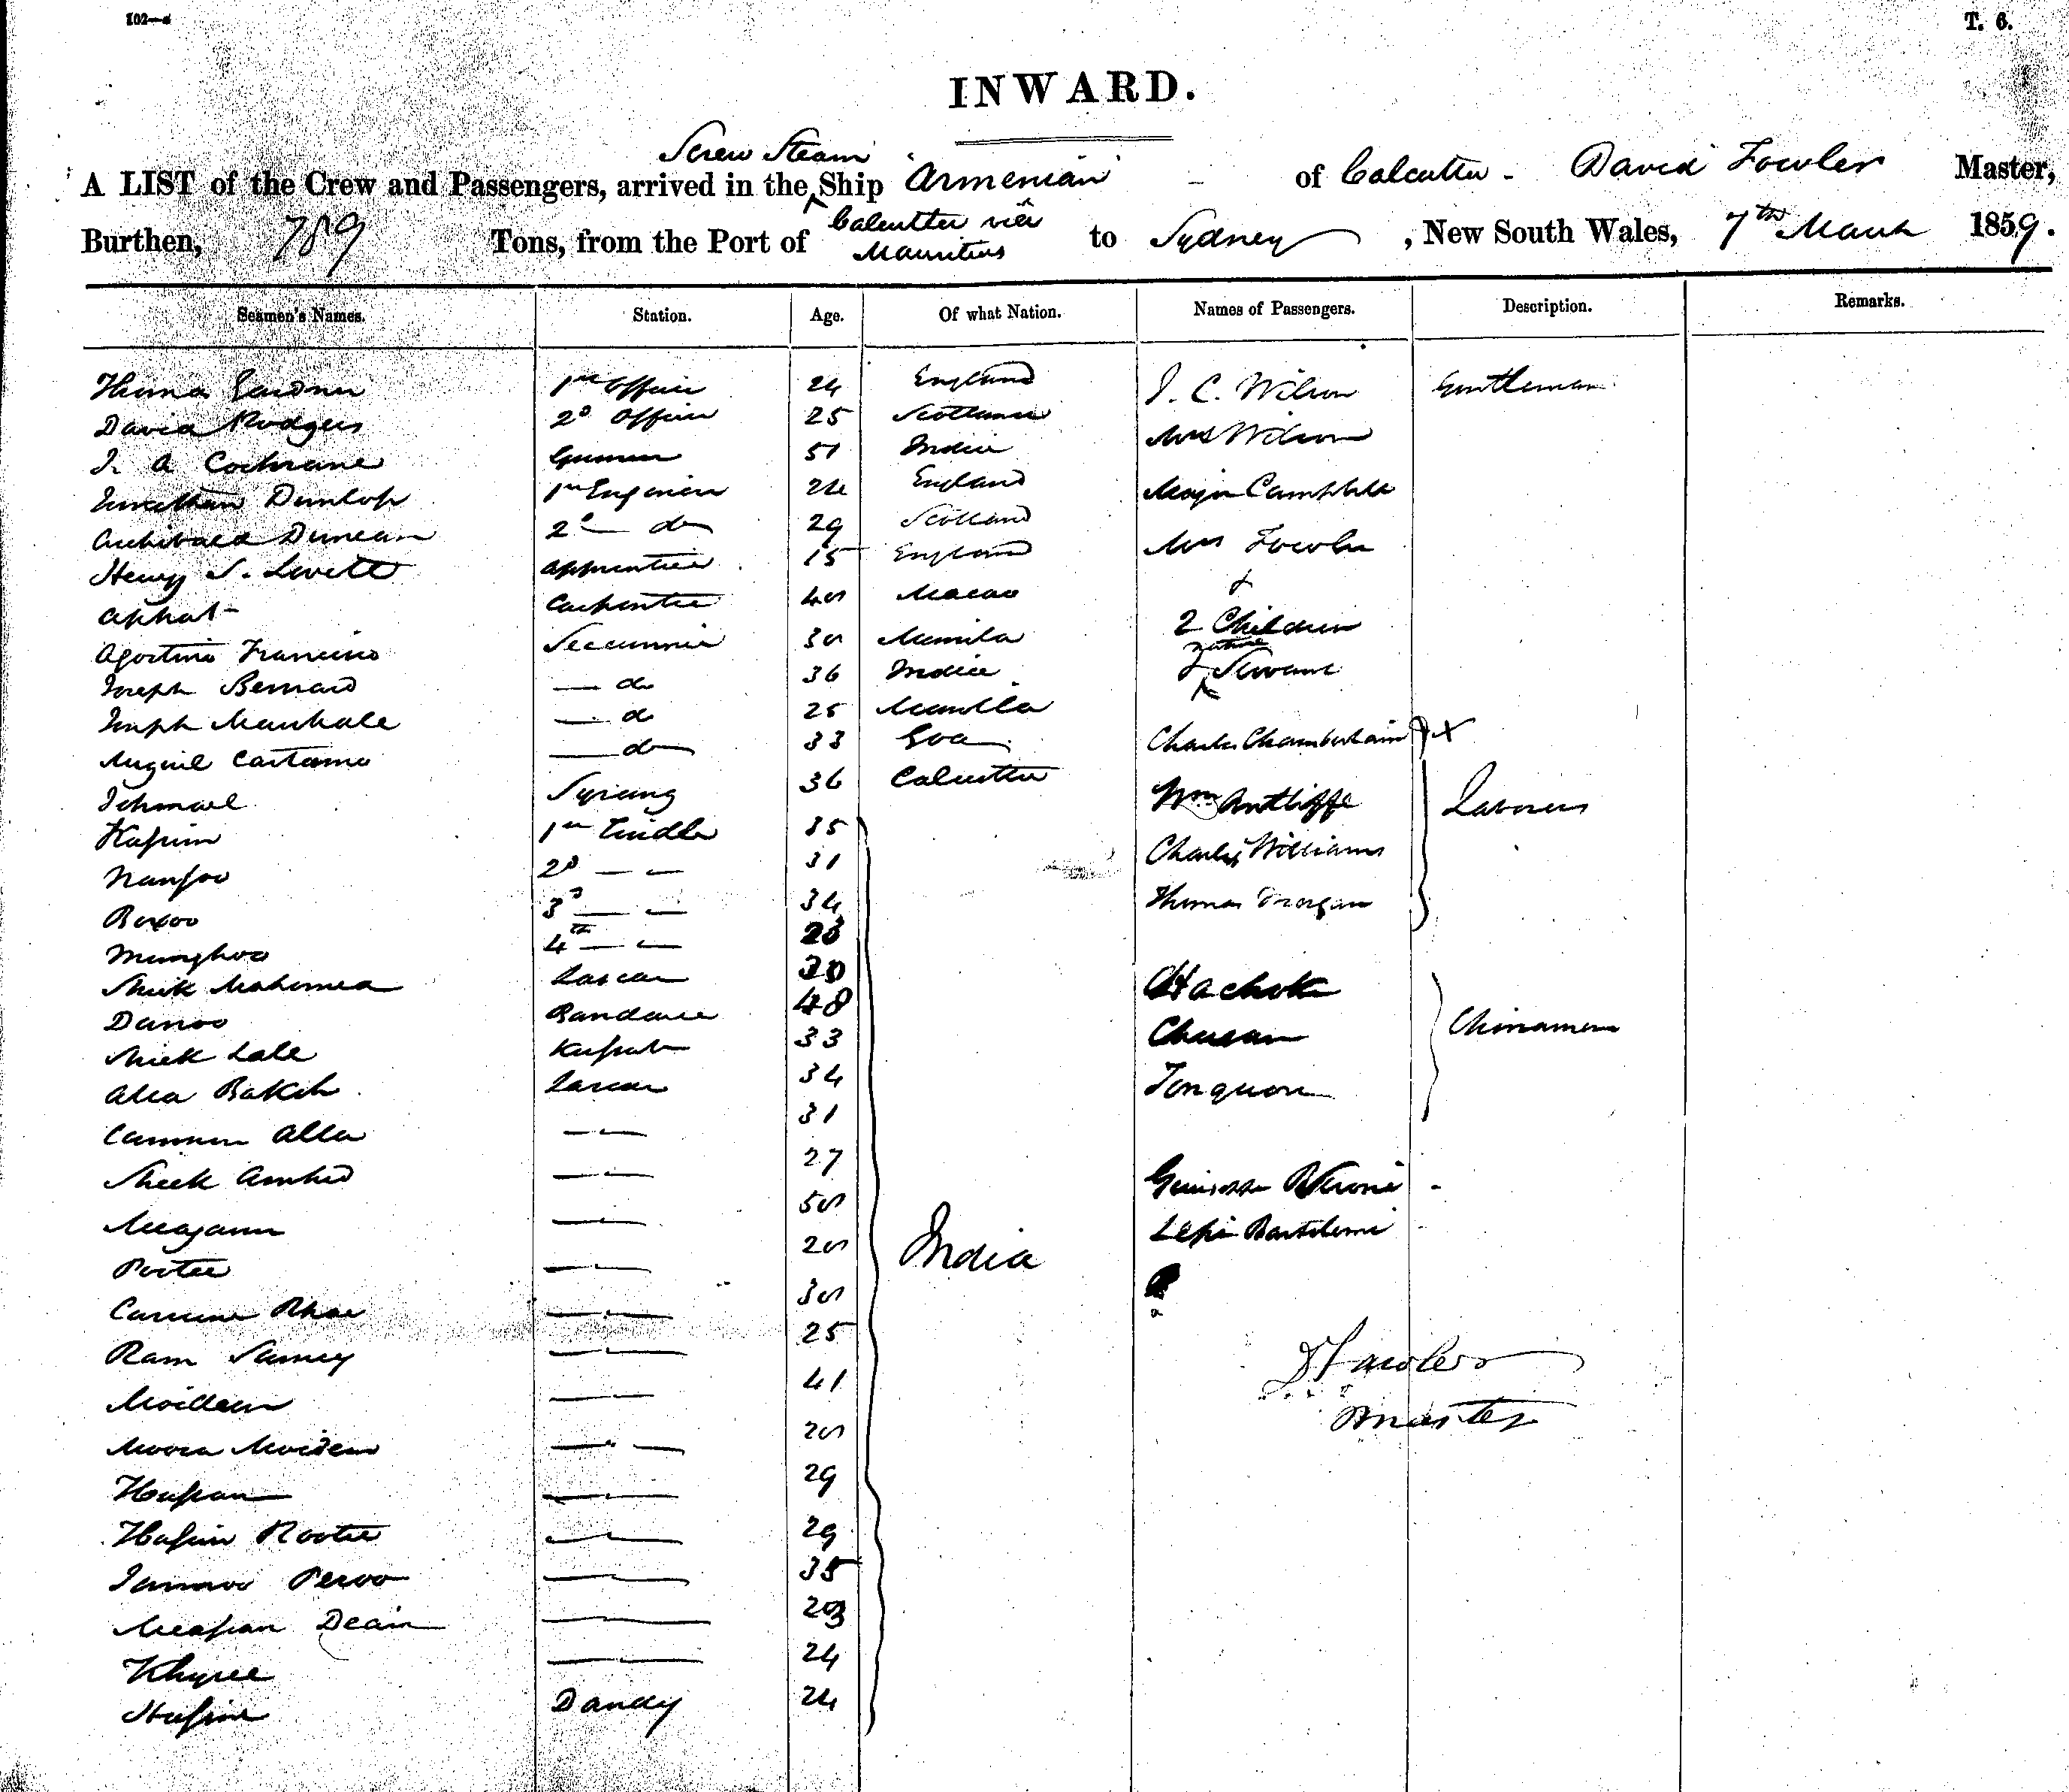 102—
T. 6.
INWARD.
Screw Steam
A LIST of the Crew and Passengers, arrived in the Ship Armenian of Calcutta - David Fowler Master,
Burthen, 789 Tons, from the Port of Calcutta via Mauritius to Sydney, New South Wales, 7th March 1859.
Seamen's Names. Station. Age. Of what Nation. Names of Passengers. Description. Remarks.
Thomas Gardner 1st Officer 24 England J. C. Wilson Gentleman
David Rodgers 2d Officer 25 Scotland Mrs Wilson
J. A Cochrane Gunner 51 India
Jonathan Dunlop 1st Engineer 24 England Major Campbell
Archibald Duncan 2d — do 29 Scotland
Henry S. Levett apprentice 15 England Mrs Fowler
Aphat Carpenter 40 Macao &
Agostino Francisco Seccunnie 30 Manila 2 Children
Joseph Bernard — do 36 India & native Servant
Joseph — do 25 Manilla
— do 33 Goa Charles Chamberlain
Ishmael Syrang 36 Calcutta Wm Antliffe Laborers
Kassim 1st Tindle 35 Charles Williams
Nansoo 2d — — 31
Boxoo 3d — — 34 Thomas Morgan
Munghoo 4th — — 23
Sheik Mahomed Lascar 30 Hachok
Danoo Bandaree 48
Sheik Lall Kussab 33 Chusan Chinamen
Alla Baksh Lascar 34 Tonquon
Cammin Alla — — 31
Sheek Amhed — — 27
Meajann — — 50
Pootee — — 20 India Bartolemi
Carrime Khan — — 30
Ram Samey — — 25 D Fowler
Moideen — — 41 Master
Moora Moideen — — 20
Hassan — — 29
Hassim Rootee — — 29
Jammoo Peroo — — 35
Meassan Deain — — 23
Khyree — — 24
Hassim Dandy 24